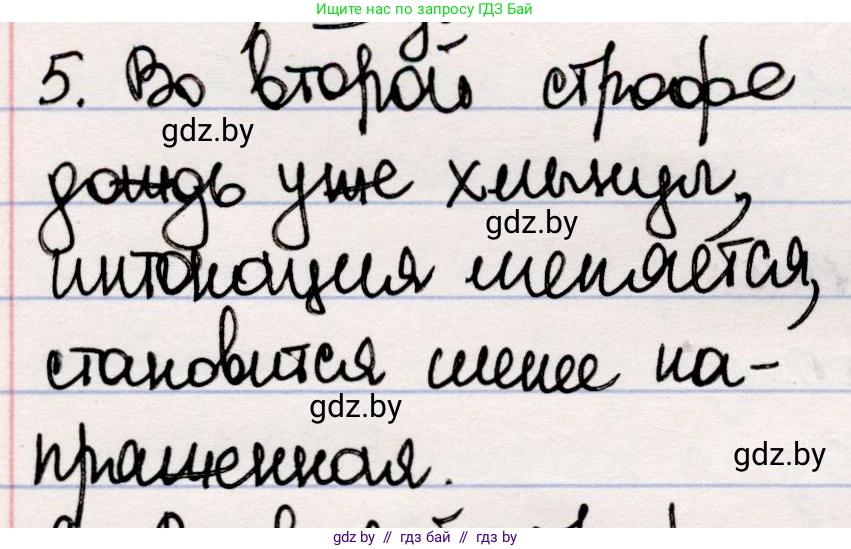 Ищите нас по запросу ГДЗ Бай
5. Во второй строфе
gdz.by
дождь уже хлынул,
gdz.by
интонация меняется,
становится менее на-
gdz.by
пряженная.
gdz.by
gdz by // гдз бай // гдз by